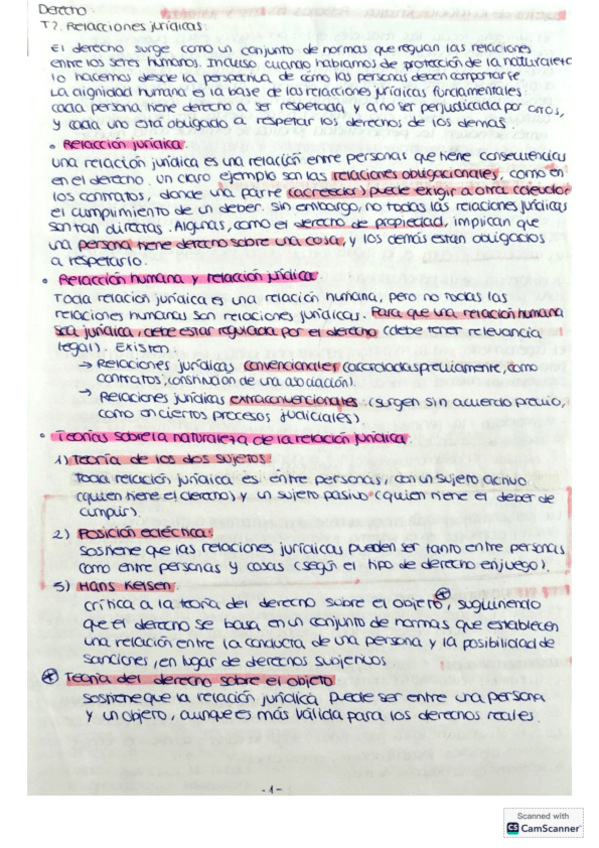 Derecho
T7. Relacciones jurídicas:
El derecho surge como un conjunto de normas que regulan las relaciones
entre los seres humanos. Incluso cuando hablamos de protección de la naturaleza
lo hacemos desde la perspectiva de cómo las personas deben comportarse.
La dignidad humana es la base de las relaciones jurídicas fundamentales
cada persona tiene derecho a ser respetada y a no ser perjudicada por otros,
y cada uno está obligado a respetar los derechos de los demás.
• Relacción jurídica:
Una relación jurídica es una relación entre personas que tiene consecuencias
en el derecho. Un claro ejemplo son las relaciones obligacionales, como en
los contratos, donde una parte (acreedor) puede exigir a otra (deudor)
el cumplimiento de un deber. Sin embargo, no todas las relaciones jurídicas
son tan directas. Algunas, como el derecho de propiedad, implican que
una persona tiene derecho sobre una cosa, y los demás están obligados
a respetarlo.
• Relacción humana y relacción jurídica
Toda relación jurídica es una relación humana, pero no todas las
relaciones humanas son relaciones jurídicas. Para que una relación humana
sea jurídica, debe estar regulada por el derecho (debe tener relevancia
legal). Existen:
→ Relaciones jurídicas convencionales (acordadas previamente, como
contratos, constitución de una asociación).
→ Relaciones jurídicas extraconvencionales: (surgen sin acuerdo previo,
como en ciertos procesos judiciales).
• Teorías sobre la naturaleza de la relación jurídica:
1) Teoría de los dos sujetos:
Toda relación jurídica es entre personas, con un sujeto activo
(quien tiene el derecho) y un sujeto pasivo (quien tiene el deber de
cumplir).
2) Posición ecléctica:
Sostiene que las relaciones jurídicas pueden ser tanto entre personas
como entre personas y cosas (según el tipo de derecho en juego).
3) Hans Kelsen:
Crítica a la teoría del derecho sobre el objeto, sugiriendo
que el derecho se basa en un conjunto de normas que establecen
una relación entre la conducta de una persona y la posibilidad de
sanciones, en lugar de derechos subjetivos
* Teoría del derecho sobre el objeto
Sostiene que la relación jurídica puede ser entre una persona
y un objeto, aunque es más válida para los derechos reales.
-1-
Scanned with
CS CamScanner